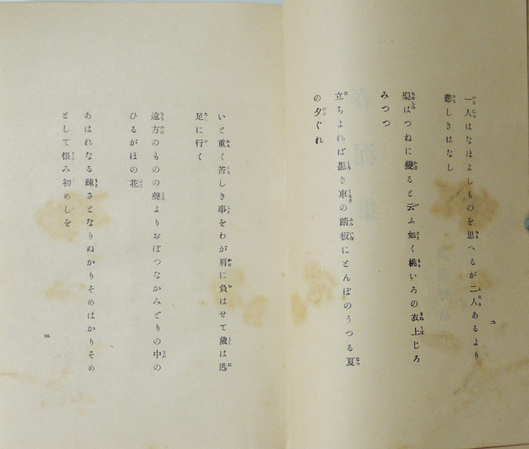 一人はなほよしものを思へるが二人あるより
悲しきはなし
樂はつねに變ると云ふ如く桃いろの衣上じろ
みつつ
立ちよれば黒き車の踏板にとんぼのうつる夏
の夕ぐれ
いと重く苦しき事をわが肩に負はせて歳は逃
足に行く
遠方のものの聲よりおぼつなかみどりの中の
ひるがほの花
あはれなる疎さとなりぬかりそめはかりそめ
として恨み初めしを